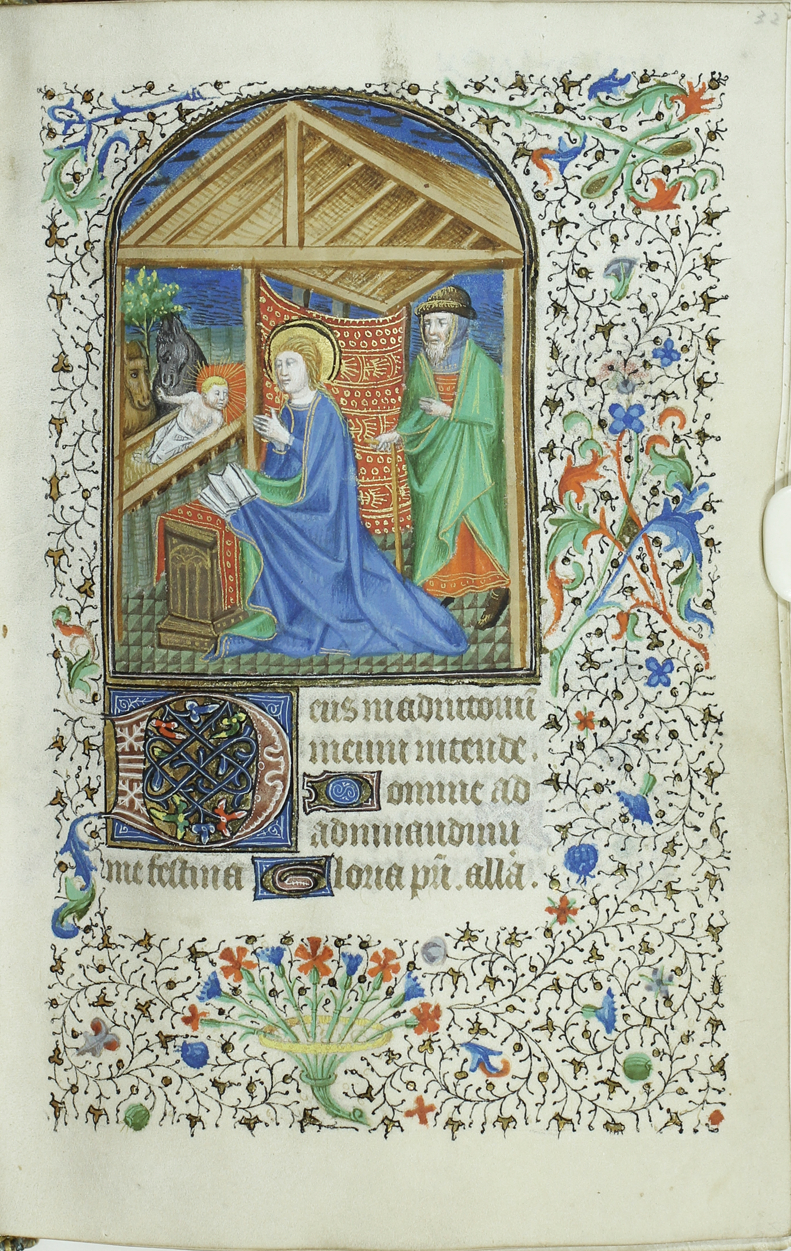 32
Deus in adiutoriū
meum intende
Domine ad
adiuuandum
me festina Gloria pr̄i . allā .